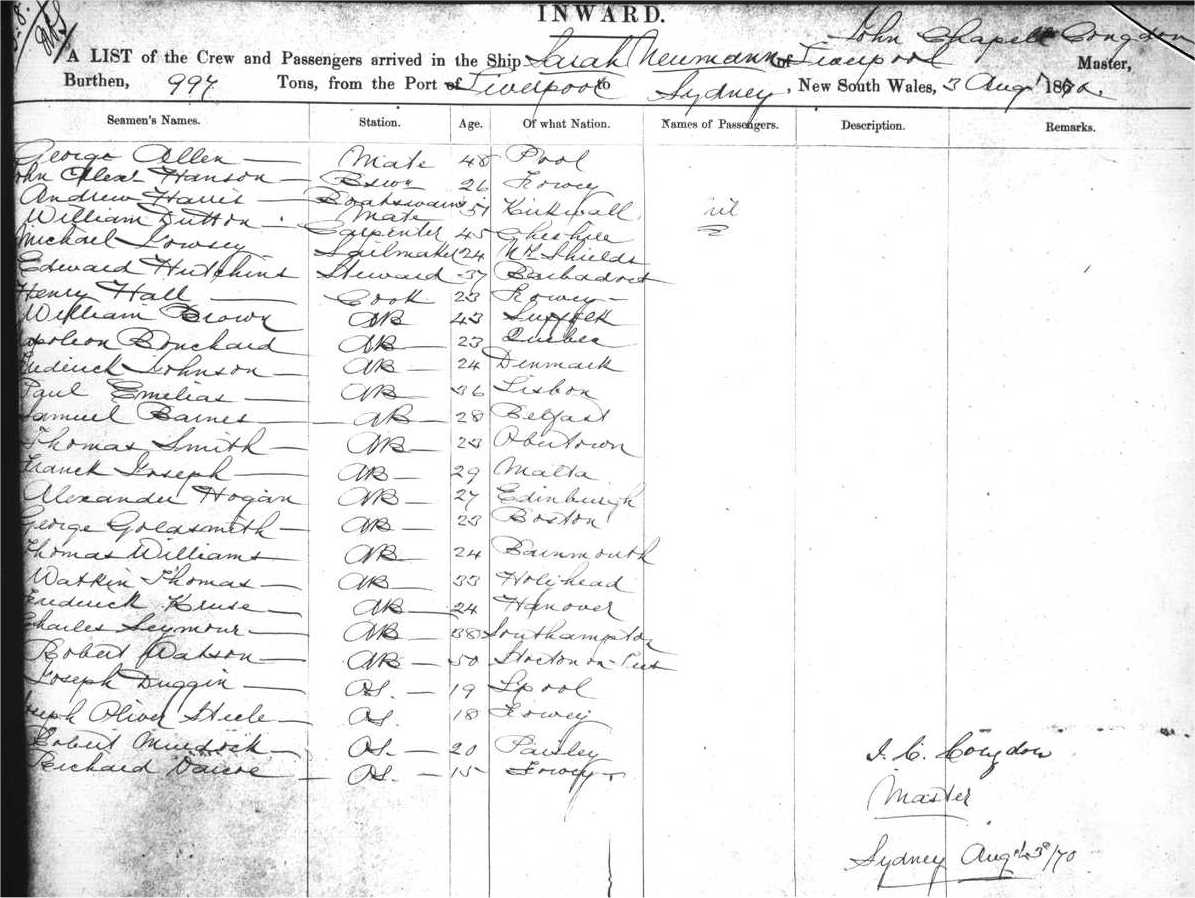 INWARD.
John Chapell Congdon
A LIST of the Crew and Passengers arrived in the Ship Sarah Neumann of Liverpool Master,
Burthen, 997 Tons, from the Port of Liverpool to Sydney, New South Wales, 3 Aug 1870.
Seamen's Names. Station. Age. Of what Nation. Names of Passengers. Description. Remarks.
George Allen Mate 48 Pool
John Alexr Hanson Bswn 26 Fowey
Andrew Harris Boatswains Mate 51 Kirkwall nil
William Dutton Carpenter 45 Cheshire
Michael Sailmaker 24 Nth Shields
Edward Hutchins Steward 37 Barbadoes
Henry Hall Cook 23 Fowey
William Brown AB 43 Suffolk
Napoleon Bouchard AB 23 Quebec
Frederick Johnson AB 24 Denmark
Paul Emilias AB 36 Lisbon
Samuel Barnes AB 28 Belfast
Thomas Smith AB 23
Franck Joseph AB 29 Malta
Alexander Hogan AB 27 Edinburgh
George Goldsmith AB 23 Boston
Thomas Williams AB 24 Barnmouth
Watkin Thomas AB 33 Holihead
Frederick Kruse AB 24 Hanover
Charles Seymour AB 38 Southampton
Robert Watson AB 50 Stocton on Tees
Joseph Duggin OS. 19 Lpool
Joseph Oliver Steele OS. 18 Fowey
Robert Murdock OS. 20 Paisley
Richard OS. 15 Fowey
J. C. Congdon
Master
Sydney Augt 3d/70